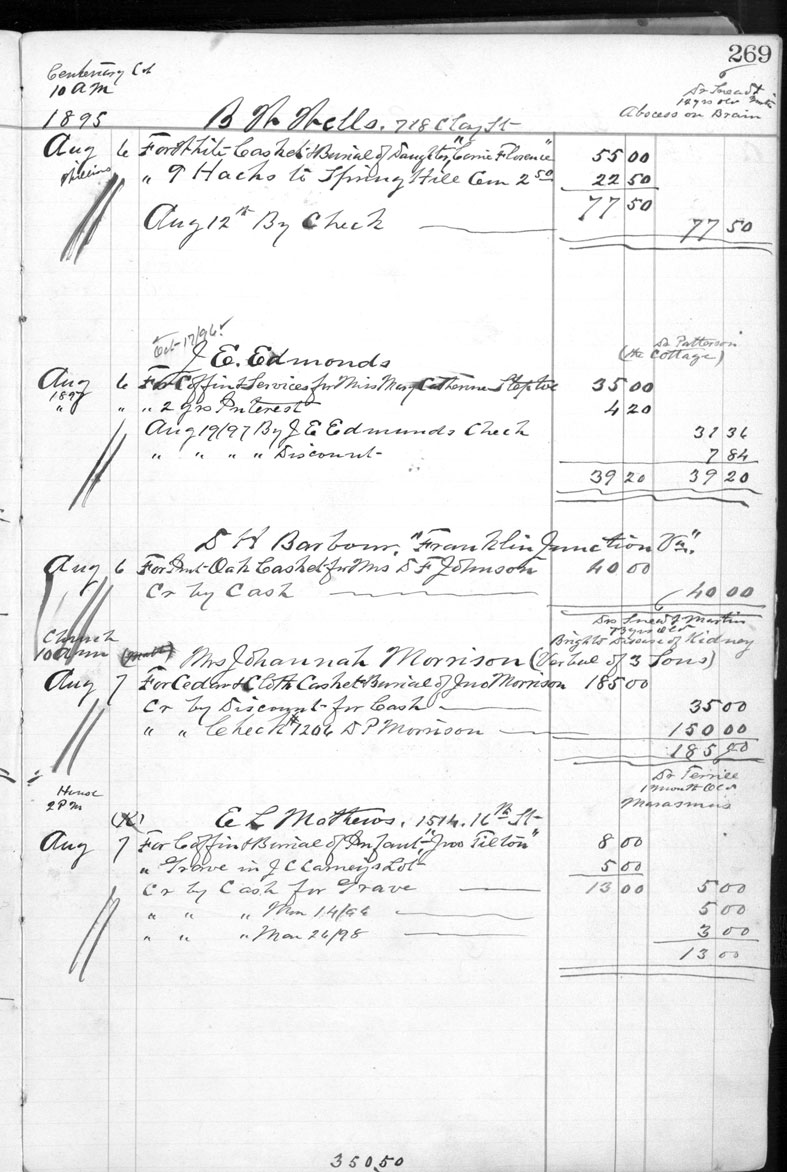 269
Centenary Ch
10 AM
Dr Snead &
14 yrs old
Abscess on Brain
1895 B W Wells. 718 Clay St
Aug 6 For White Casket & Burial of Daughter, "Carrie Florence" 55 00
" 9 Hacks to Spring Hill Cem 2 50 22 50
77 50
Aug 12th By Check 77 50
Oct 17/96
Dr Patterson
J E. Edmonds (the Cottage)
Aug 6 For Coffin & Services for Miss Mary Catherine Steptoe 35 00
1897
" " " 2 yrs Interest 4 20
Aug 19/97 By J E Edmunds Check 31 36
" " " " Discount 7 84
39 20 39 20
D H Barbour, "Franklin Junction Va".
Aug 6 For Imt Oak Casket for Mrs D F Johnson 40 00
Cr by Cash 40 00
Drs Snead & Martin
73 yrs old
Church
10 Am
Brights Disease of Kidney
Mrs Johannah Morrison (Verbal of 3 Sons)
Aug 7 For Cedar & Cloth Casket & Burial of Jno Morrison 185 00
Cr by Discount for Cash 35 00
" " Check #1206 D P Morrison 150 00
185 00
House
2 P M
Dr Terrice
1 month old
Marasmus
(K) E L Mathews, 1514. 16th St
Aug 7 For Coffin & Burial of Infant, "Jno Tilton" 8 00
" Grave in J C Carneys Lot 5 00
Cr by Cash for Grave 13 00 5 00
" " " Mar 14/96 5 00
" " " Mar 26/98 3 00
13 00
350.50